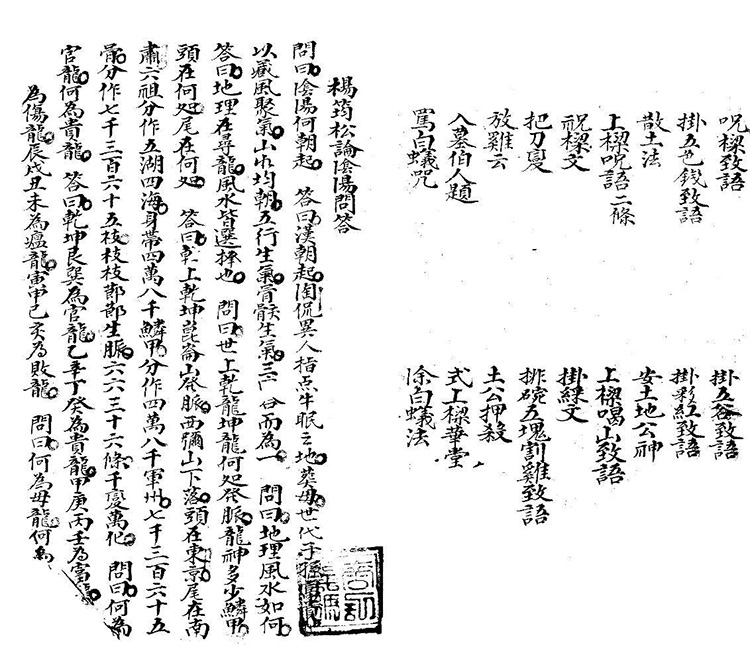 呪樑致語　掛五谷致語
掛五色錢致語　掛彩紅致語
散土法　安土地公神
上樑呪語二條　上樑喝山致語
祝樑文　掛綠文
把刀夏　排碗五塊割雞致語
放雞云　土公押殺
入墓伯人題　式上樑華堂
罵白蟻咒　除白蟻法
楊筠松論陰陽問答
問曰陰陽何朝起　答曰漢朝起陶侃異人指点牛眠之地葬母世代子孫
以藏風聚氣山水均朝五行生氣骨骸生氣三戶合而為一　問曰地理風水如何
答曰地理在尋龍風水皆選擇也　問曰世上乾龍坤龍何処發脈龍神多少鱗甲
頭在何処尾在何処　答曰乾上乾坤崑崙山發脈西彌山下落頭在東京尾在南
肅六祖分作五湖四海身帶四萬八千鱗甲分作四萬八千軍州七千三百六十五
骨分作七千三百六十五枝枝枝節節生脈六六三十六條千變萬化　問曰何為
官龍何為貴龍　答曰乾坤艮巽為官龍乙辛丁癸為貴龍甲庚丙壬為富龍
為傷龍辰戌丑未為瘟龍寅申巳亥為敗龍　問曰何為母龍何為